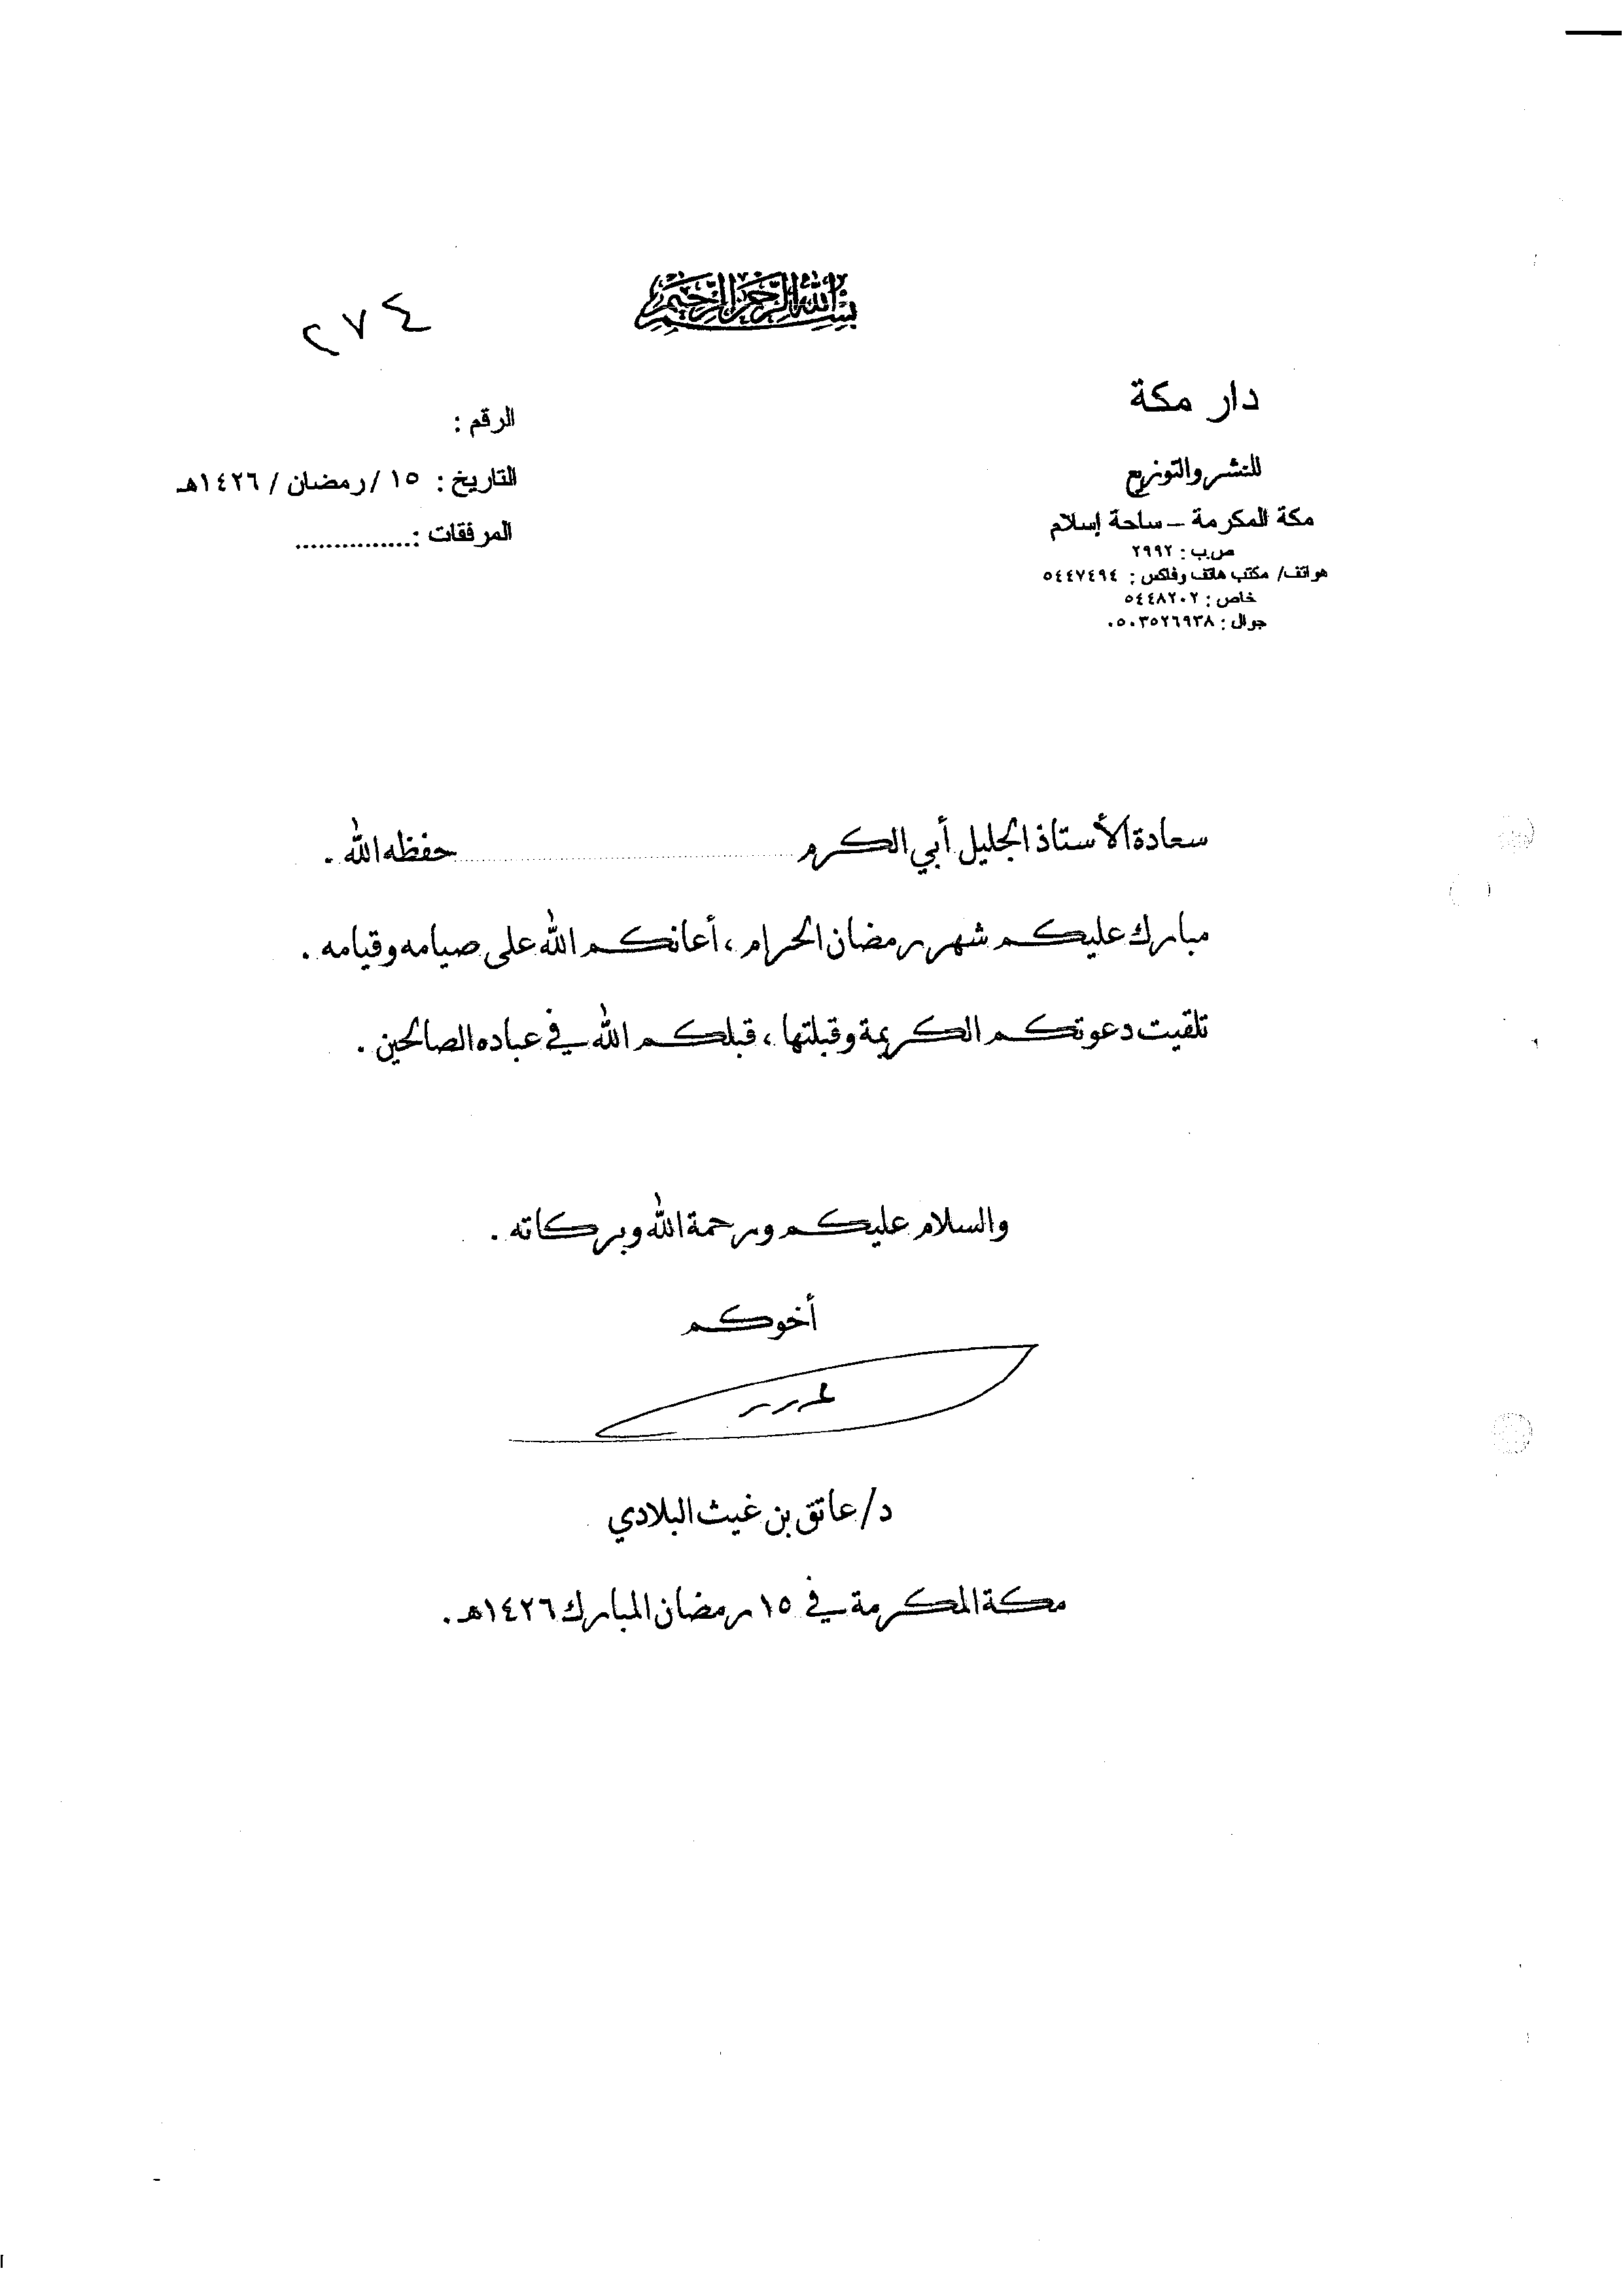 بسم الله الرحمن الرحيم
٢٧٤
دار مكة
للنشر والتوزيع
مكة المكرمة – ساحة إسلام
ص.ب : ٢٩٩٢
هواتف/ مكتب هاتف وفاكس : ٥٤٤٧٤٩٤
خاص : ٥٤٤٨٢٠٢
جوال : ٠٥٠٣٥٢٦٩٣٨
الرقم :
التاريخ : ١٥ /رمضان / ١٤٢٦هـ
المرفقات :...............
سعادة الأستاذ الجليل أبي الكرم ............ حفظه الله .
مبارك عليكم شهر رمضان الحرام ، أعانكم الله على صيامه وقيامه .
تلقيت دعوتكم الكريمة وقبلتها ، قبلكم الله في عباده الصالحين .
والسلام عليكم ورحمة الله وبركاته .
أخوكم
د/ عاتق بن غيث البلادي
مكة المكرمة في ١٥ رمضان المبارك ١٤٢٦هـ .